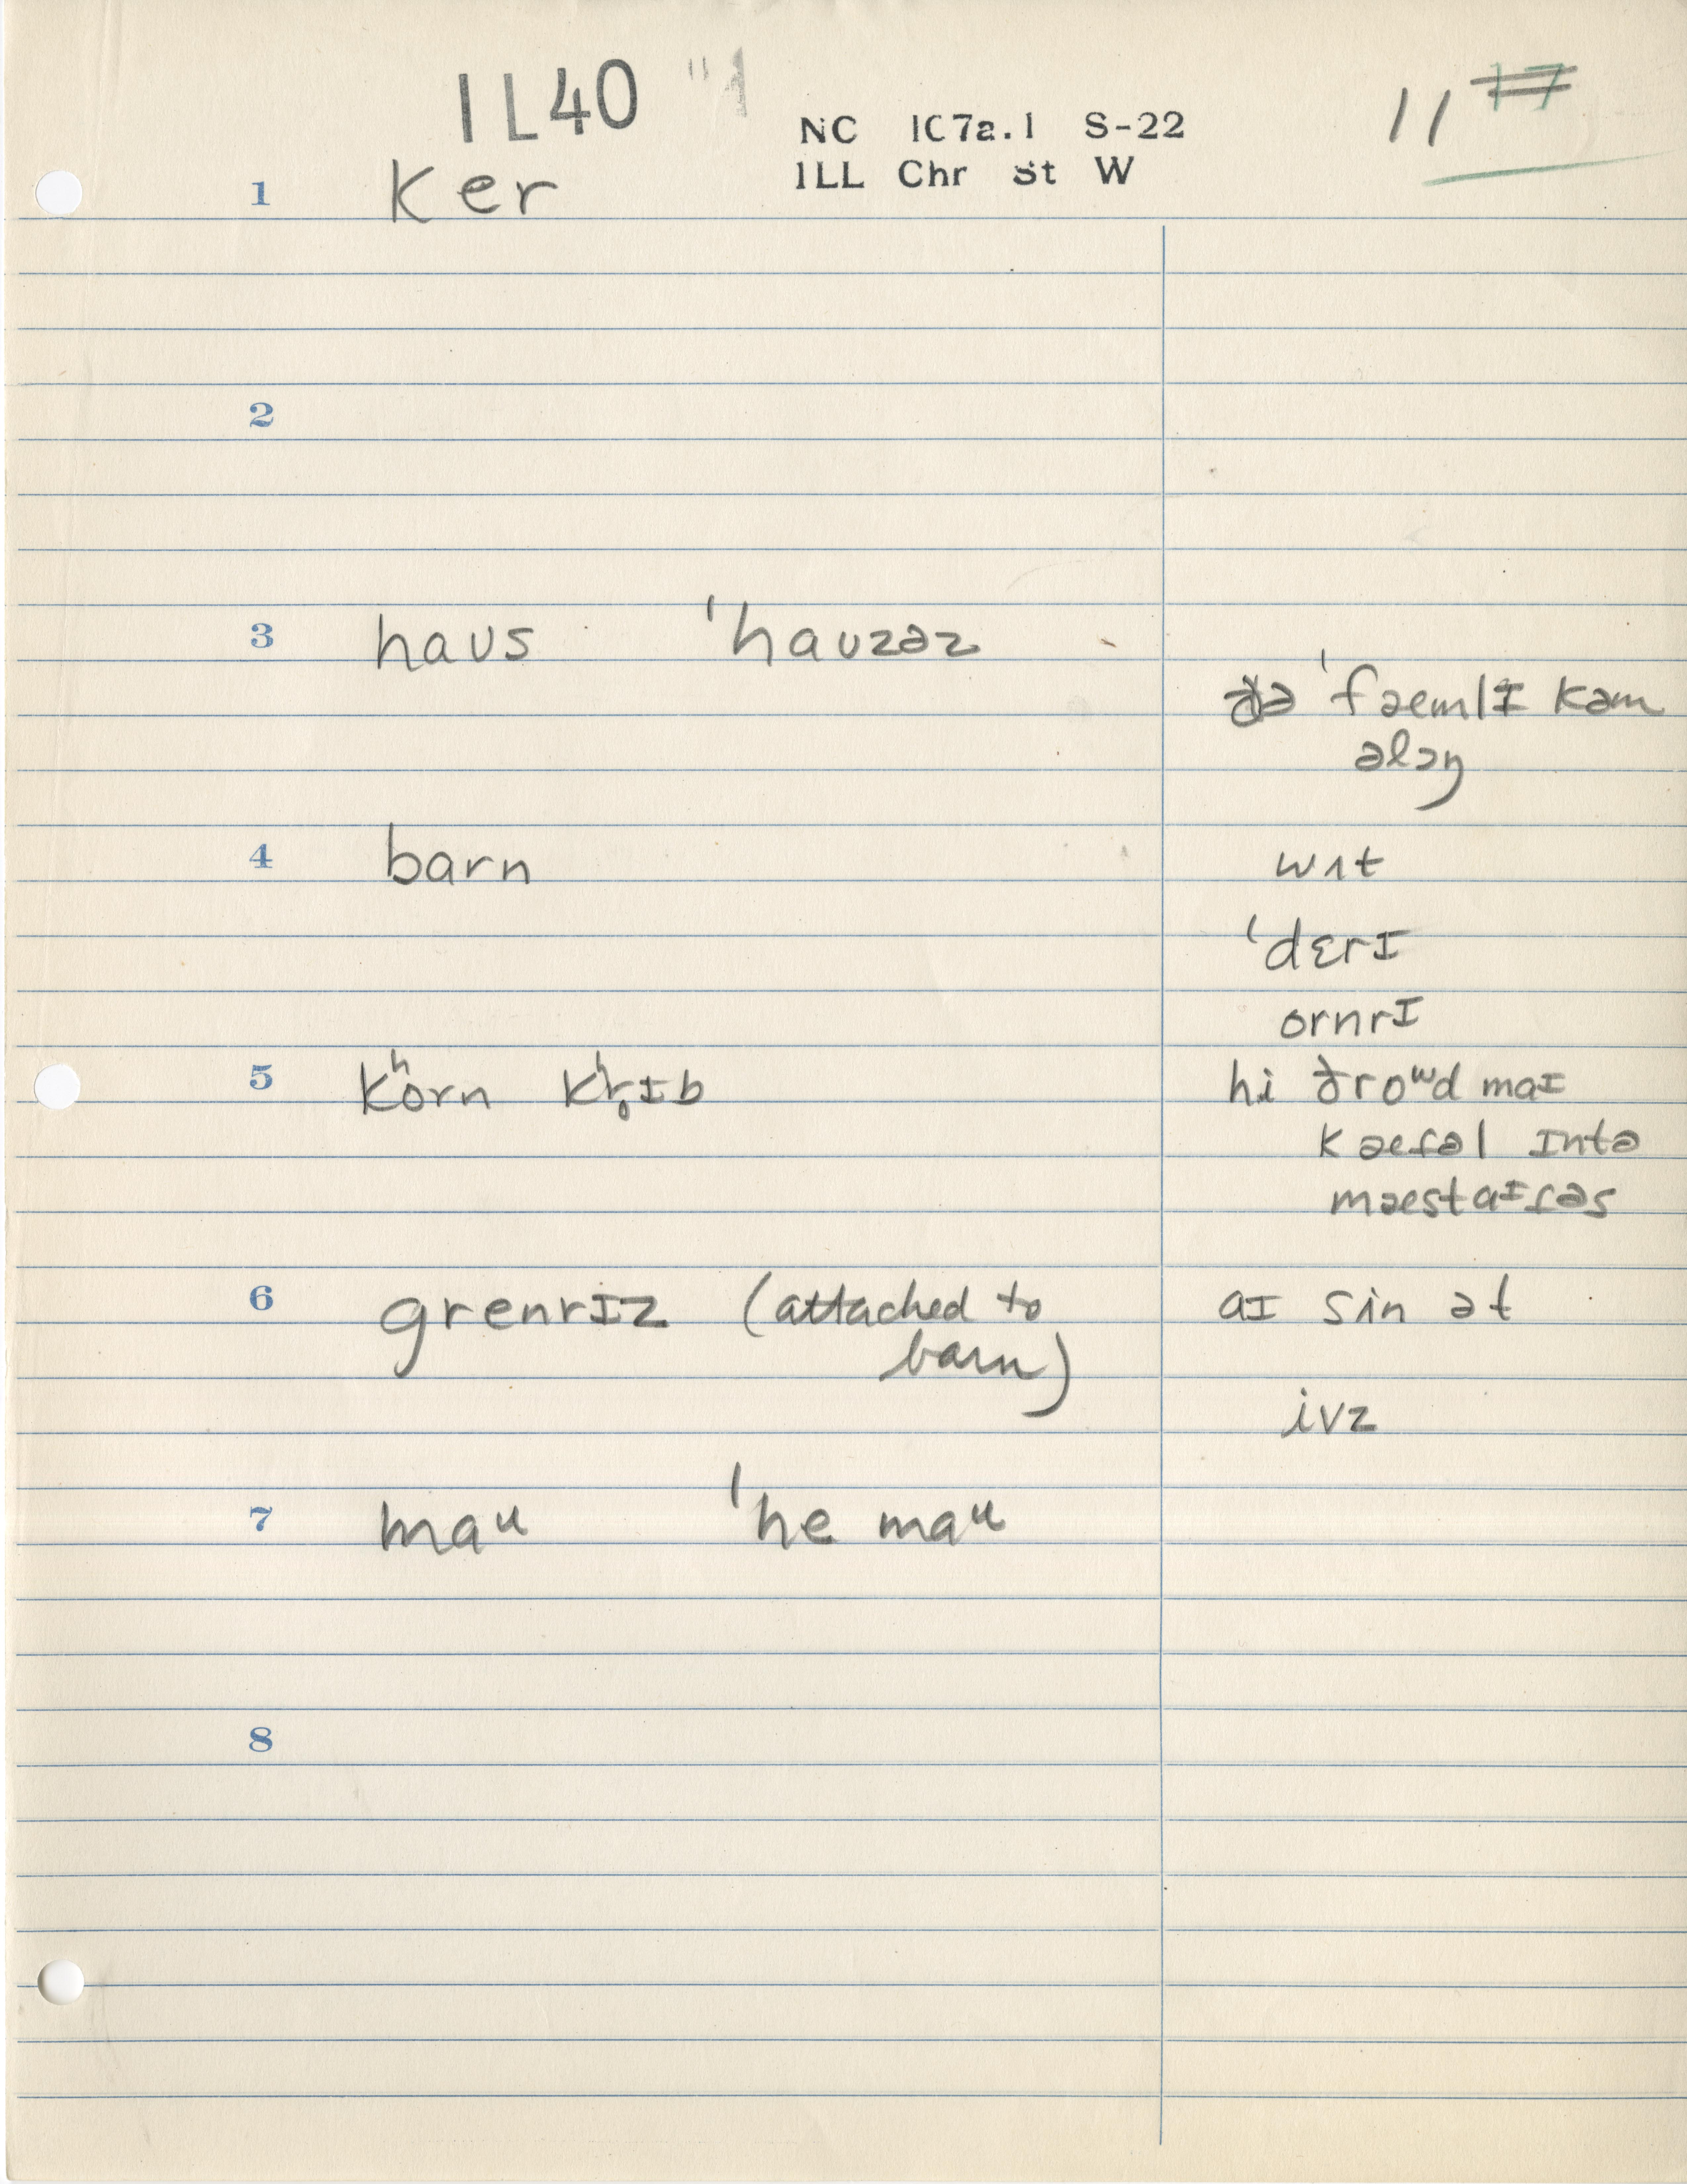 IL40 "1
NC IC7a.1 S-22
ILL Chr St W
11 17
1 ker
2
3 haus ˈhauzəz
ðə ˈfæmlɪ kəm
əlɔŋ
4 barn
wɪt
ˈdɛrɪ
ornrɪ
5 kʰorn kʰr̥ɪb
hi θroʷd maɪ
kæfəl ɪntə
mæstaɪfəs
6 grenrɪz (attached to
barn)
aɪ sin ət
ivz
7 maᵘ ˈhe maᵘ
8